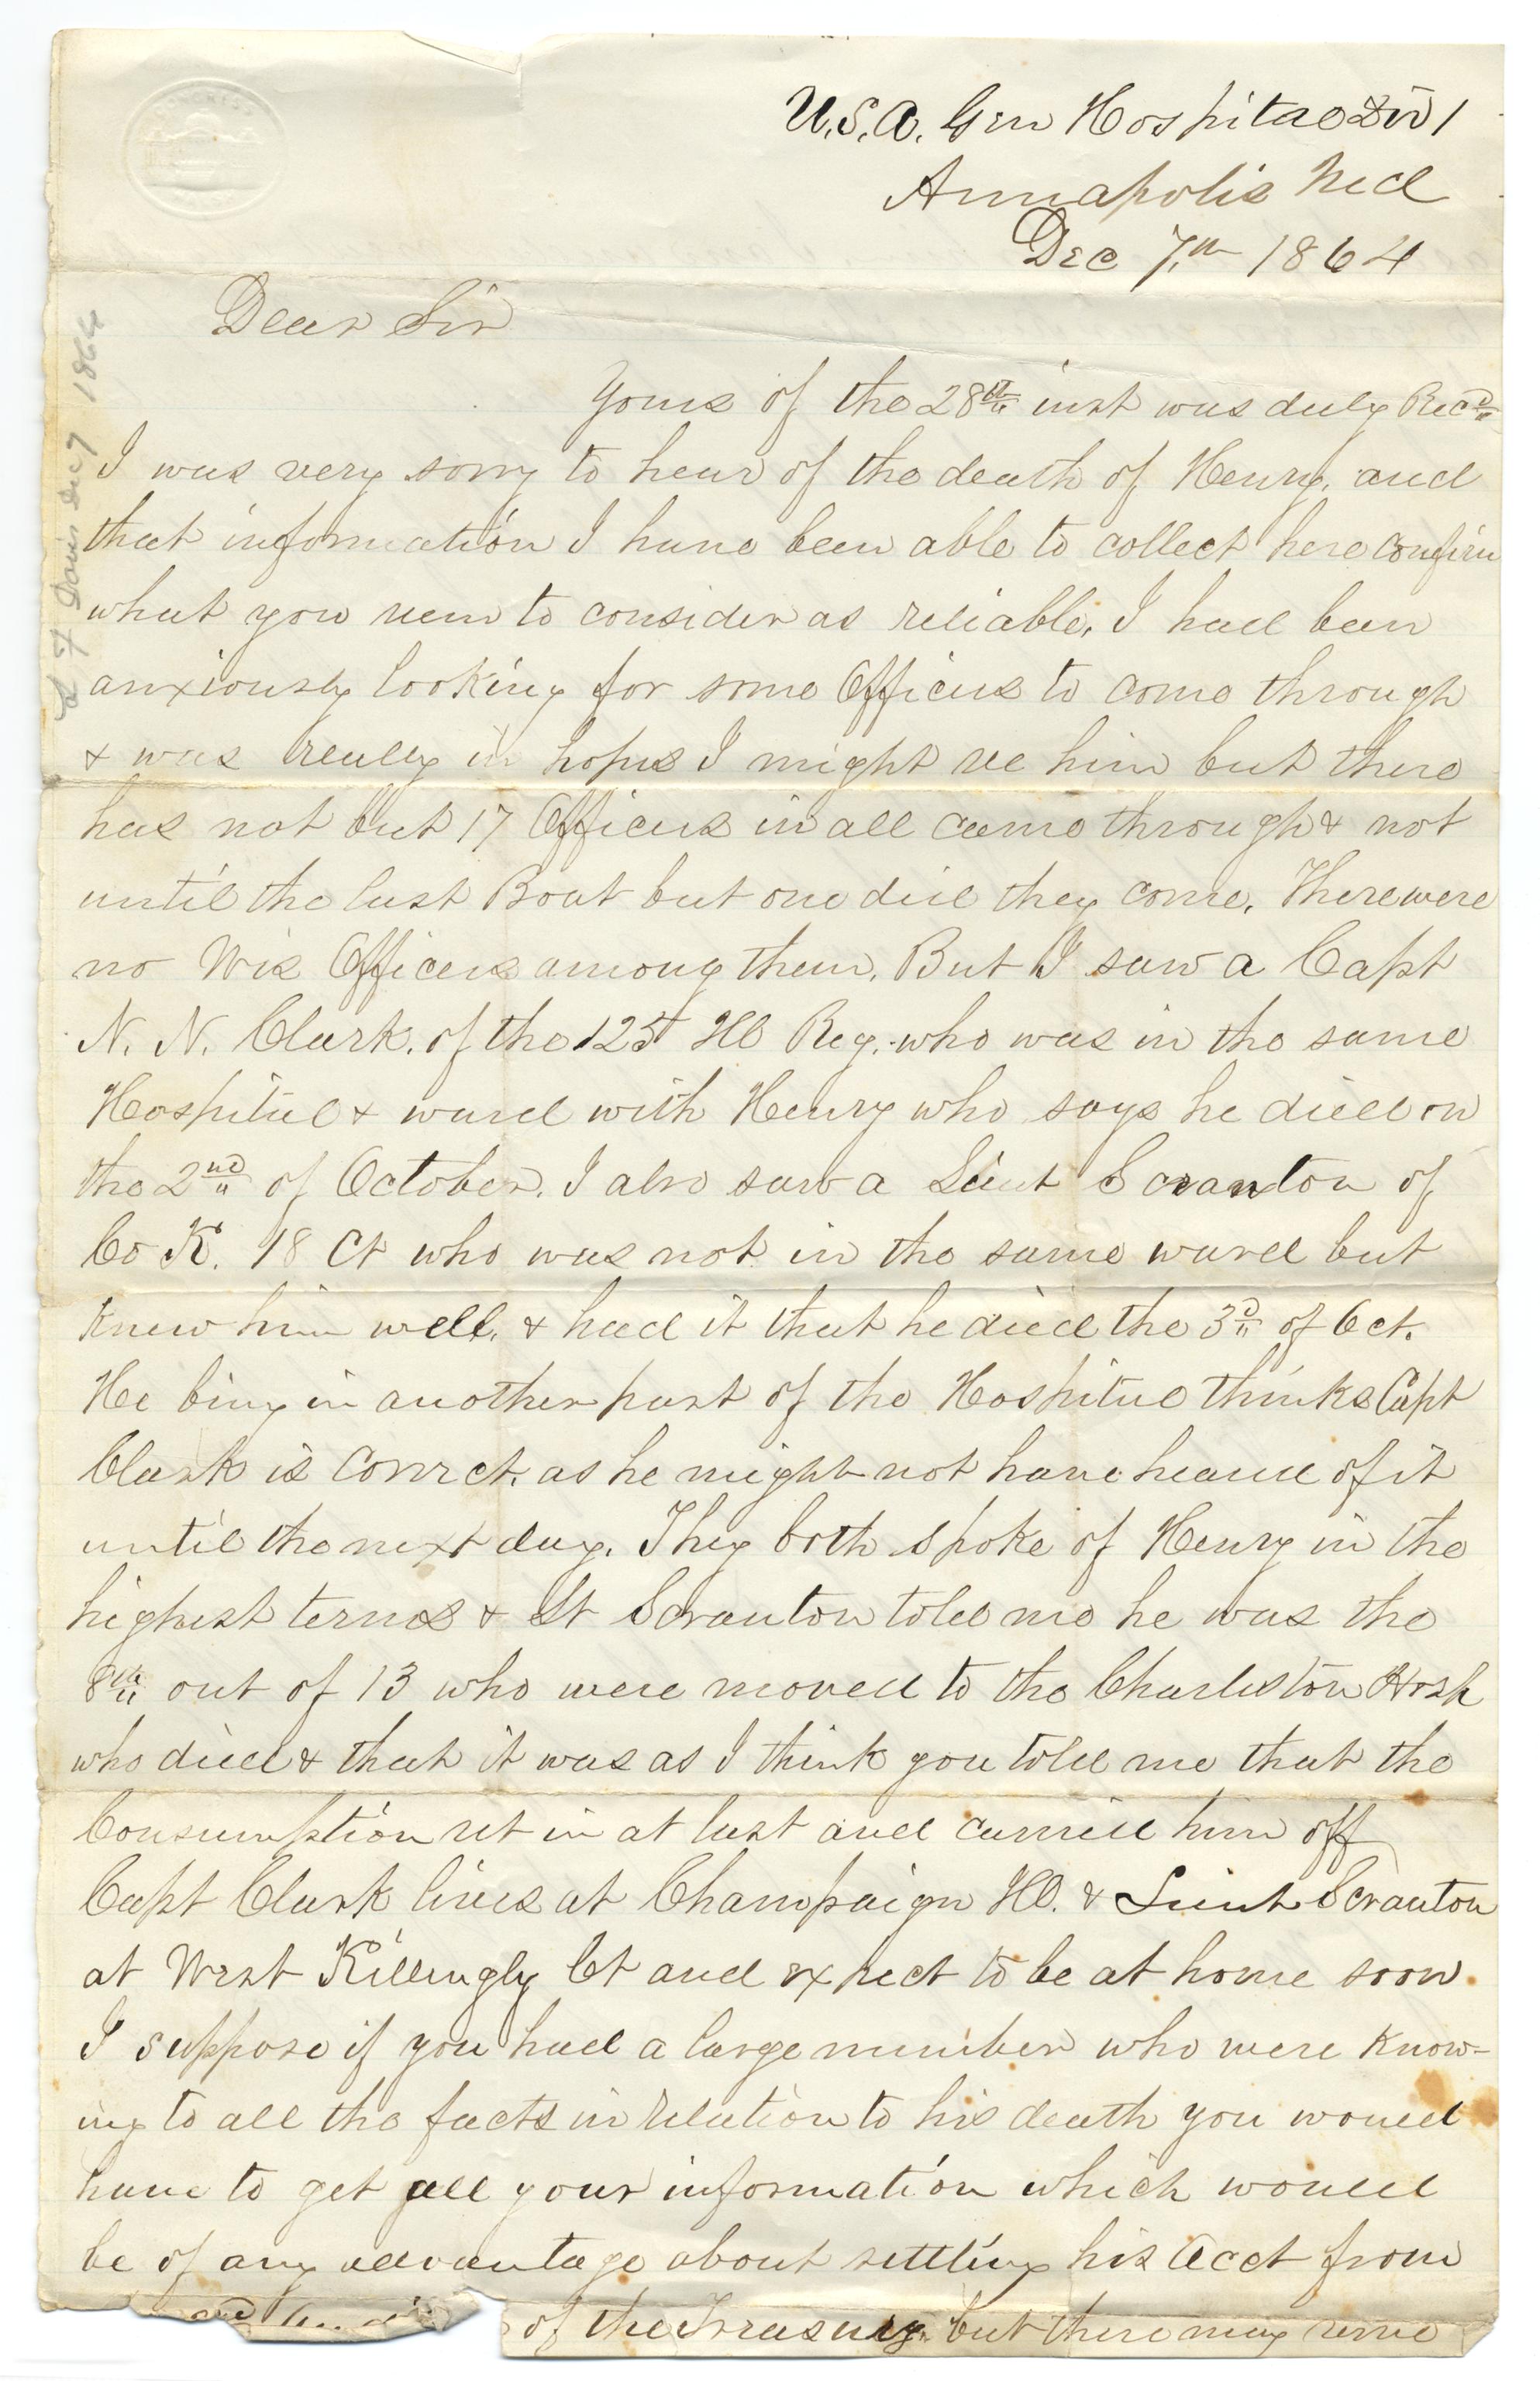 U.S.A. Gen Hospital Div 1
Annapolis Md
Dec 7th 1864
Dear Sir
Yours of the 28th inst was duly Recd
I was very sorry to hear of the death of Henry, and
that information I have been able to collect here confirm
what you seem to consider as reliable. I had been
anxiously looking for some Officers to come through
& was really in hopes I might see him but there
has not but 17 Officers in all came through & not
until the last Boat but one did they come. There were
no Wis Officers among them. But I saw a Capt
N. N. Clark. of the 125t Ill Reg. who was in the same
Hospital & ward with Henry who says he died on
the 2nd of October. I also saw a Leiut Scranton of
Co K. 18 Ct who was not in the same ward but
knew him well, & had it that he died the 3d of Oct.
He bing in another part of the Hospital thinks Capt
Clark is correct. as he might not have heard of it
until the next day. They both spoke of Henry in the
highest terms & Lt Scranton told me he was the
8th out of 13 who were moved to the Charleston Hosp
who died & that it was as I think you told me that the
Consumption set in at last and carried him off
Capt Clark lives at Champaign Ill. & Leiut Scranton
at West Killingly Ct and expect to be at home soon.
I suppose if you had a large number who were know-
ing to all the facts in relation to his death you would
have to get all your information which would
be of any advantage about settling his Acct from
of the Treasury. but there may some
Davis Dec 7 1864